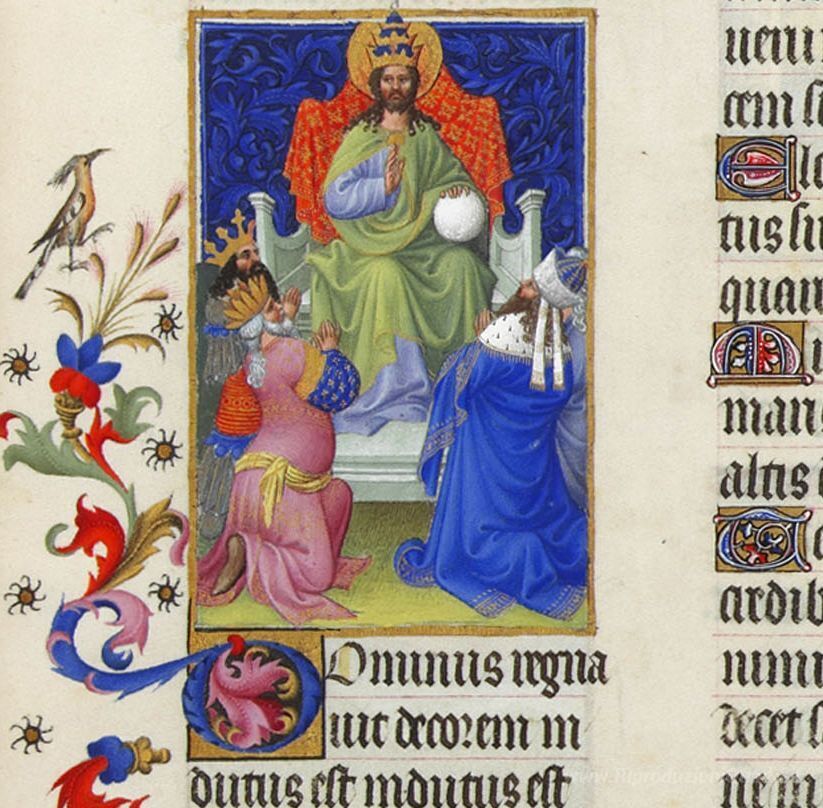 Dominus regna
uit decorem in
dutus est indutus est
ueru
cem su
El
tus su
quar
Mi
maris
altis
Te
credib
nimi
decet s
ne in